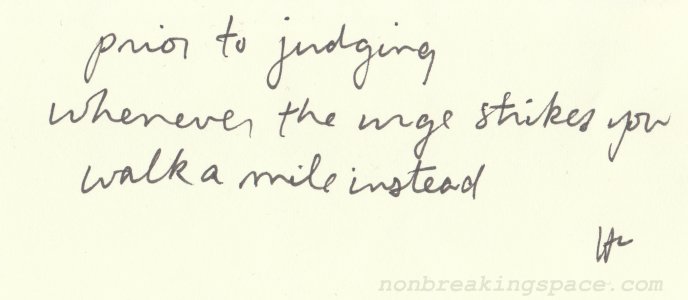 prior to judging
whenever the urge strikes you
walk a mile instead
nonbreakingspace.com